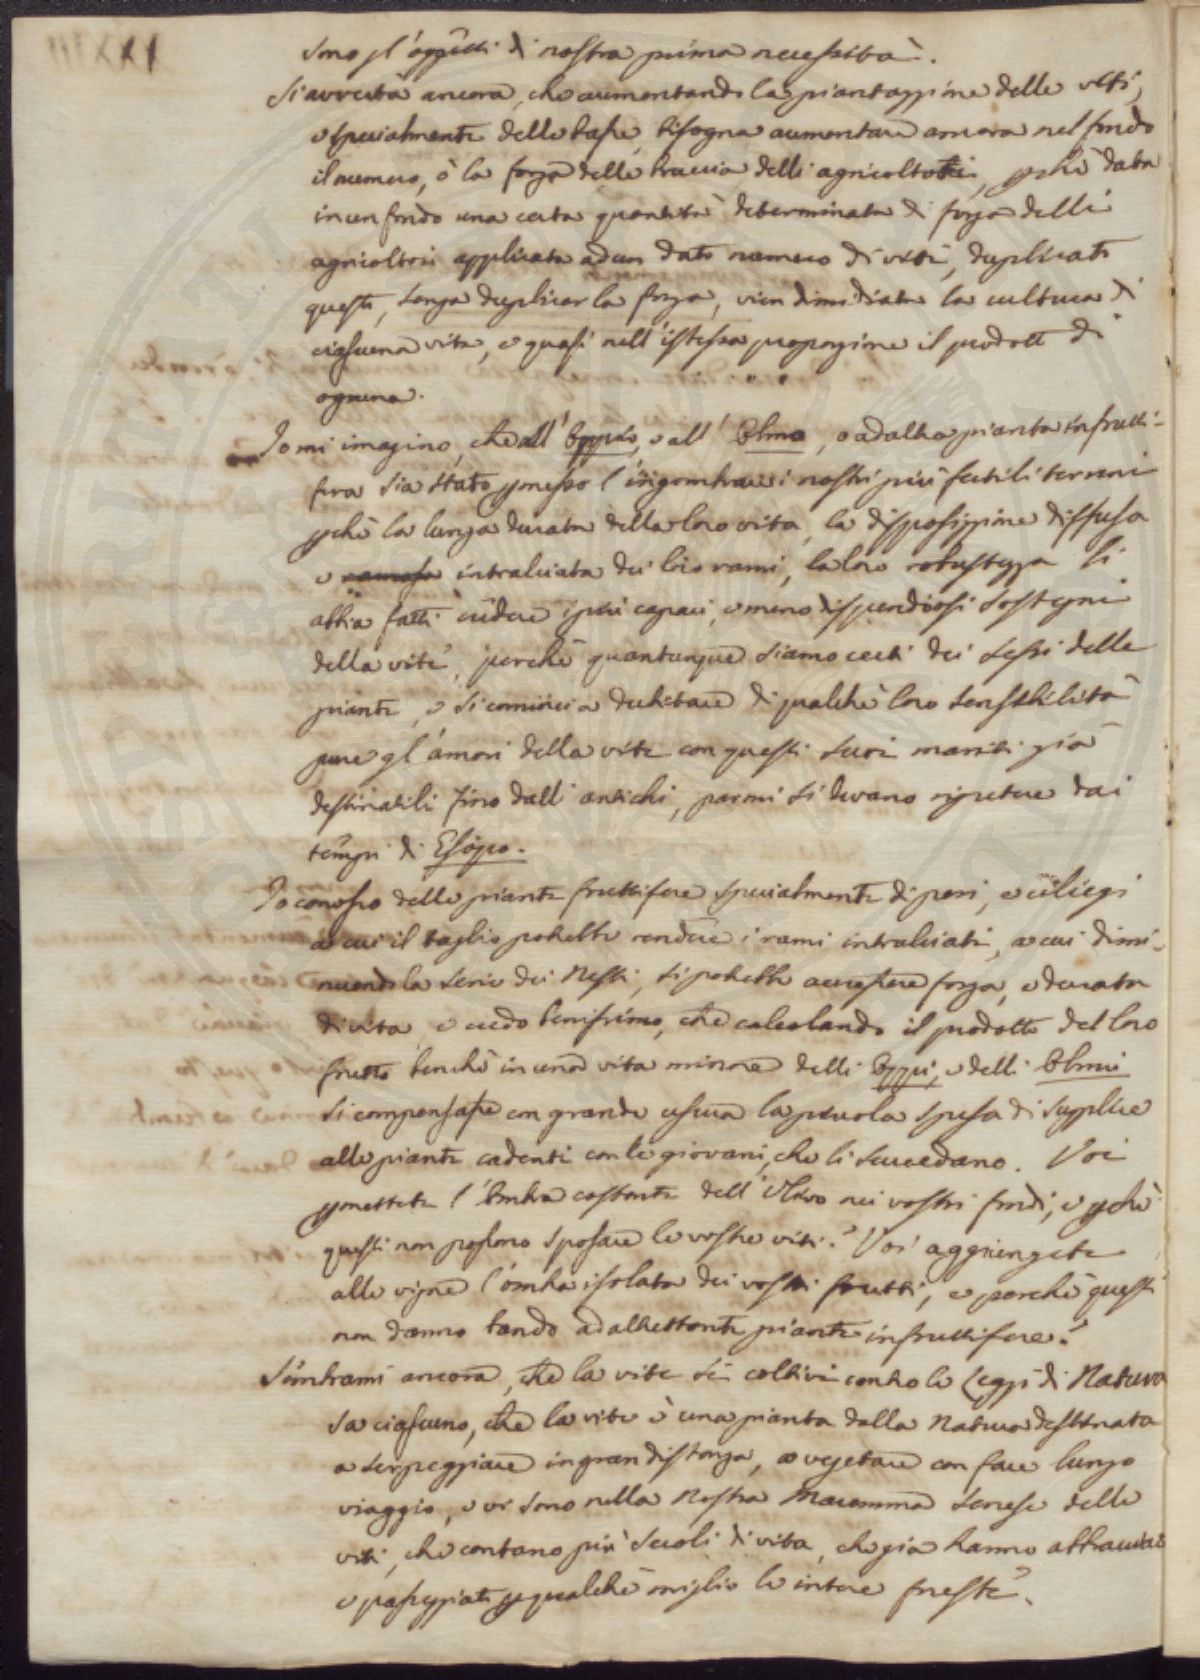 sono gl'oggetti di nostra prima necessità.
Si avverta ancora, che aumentando la piantazzione delle viti,
e specialmente delle basse, bisogna aumentare ancora nel fondo
il numero, ò la forza delle braccia delli agricoltori, pchè data
in un fondo una certa quantità determinata di forza delli
agricoltori applicata ad un dato numero di viti, duplicati
queste, senza duplicar la forza, vien dimidiata la cultura di
ciascuna vite, e quasi nell'istessa proporzione il prodotto di
ognuna.
Io mi imagino, che all'Oppio, e all'Olmo, e ad altra pianta infrutti-
fera sia stato pmesso l'ingombrare i nostri più fertili terreni
pchè la lunga durata della loro vita, la disposizzione diffusa
e ramosa intralciata dei loro rami, la loro robustezza li
abbia fatti credere i più capaci, e meno dispendiosi sostegni
della vite, perchè quantunque siamo certi dei sessi delle
piante, e si cominci a dubitare di qualche loro sensibilità
pure gl'amori della vite con questi suoi mariti già
destinatili fino dalli antichi, parmi si devano ripetere dai
tempi di Esopo.
Io conosco delle piante fruttifere specialmente di peri, e ciliegi
a cui il taglio potrebbe rendere i rami intralciati, a cui dimi-
nuendo la serie dei Nesti, si potrebbe accrescere forza, e durata
di vita e credo benissimo, che calcolando il prodotto del loro
frutto benchè in una vita minore delli Oppi, e delli Olmi
si compensasse con grande usura la piccola spesa di supplire
alle piante cadenti con le giovani, che li succedano. Voi
pmettete l'ombra costante dell'Olivo nei vostri fondi, e pchè
questi non possono sposare le vostre viti? Voi aggiungete
alle vigne l'ombra isolata dei vostri frutti, e perchè questi
non danno bando ad altrettante piante infruttifere?
Sembrami ancora, che la vite si coltivi contro le Leggi di Natura
sa ciascuno, che la vite è una pianta dalla Natura destinata
a serpeggiare in gran distanza, a vegetare con fare lungo
viaggio, e vi sono nella nostra Maremma Senese delle
viti, che contano più secoli di vita, che già hanno abbracciato
e passeggiato p qualche miglio le intere foreste.